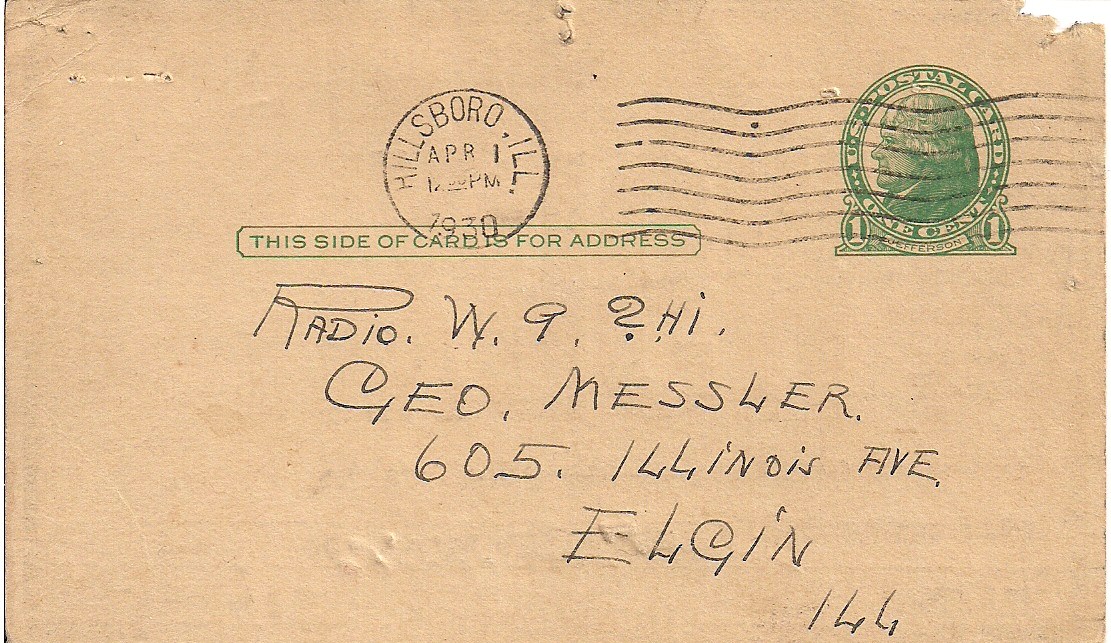 HILLSBORO, ILL.
APR 1
PM
1930
U.S. POSTAL CARD
ONE CENT
1 JEFFERSON 1
THIS SIDE OF CARD IS FOR ADDRESS
RADIO. W. 9. ? Hi.
GEO. MESSLER.
605. ILLINOIS AVE.
ELGIN
ILL